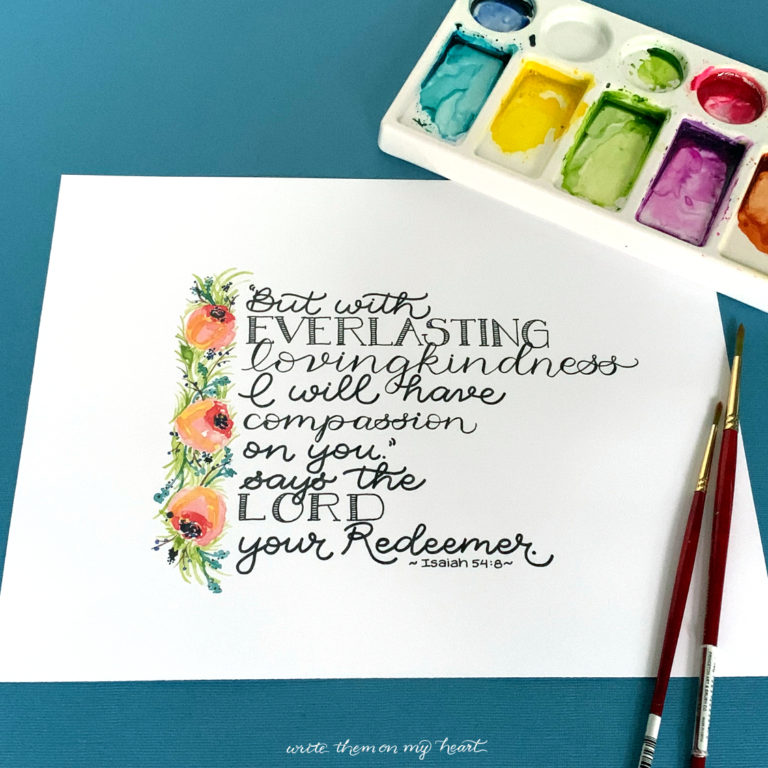 "But with
EVERLASTING
lovingkindness
I will have
compassion
on you."
says the
LORD
your Redeemer.
~Isaiah 54:8~
write them on my heart